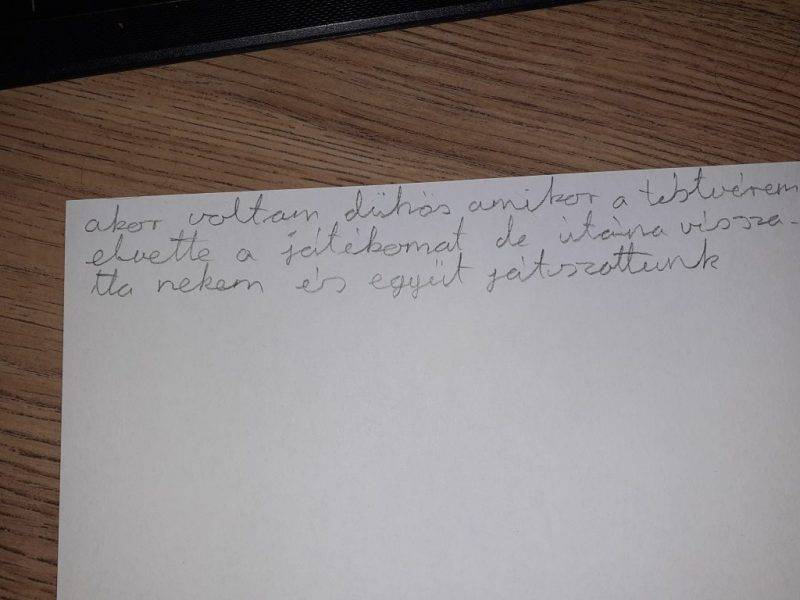 akor voltam dühös amikor a testvérem
elvette a játékomat de utána vissza-
tta nekem és együt játszottunk